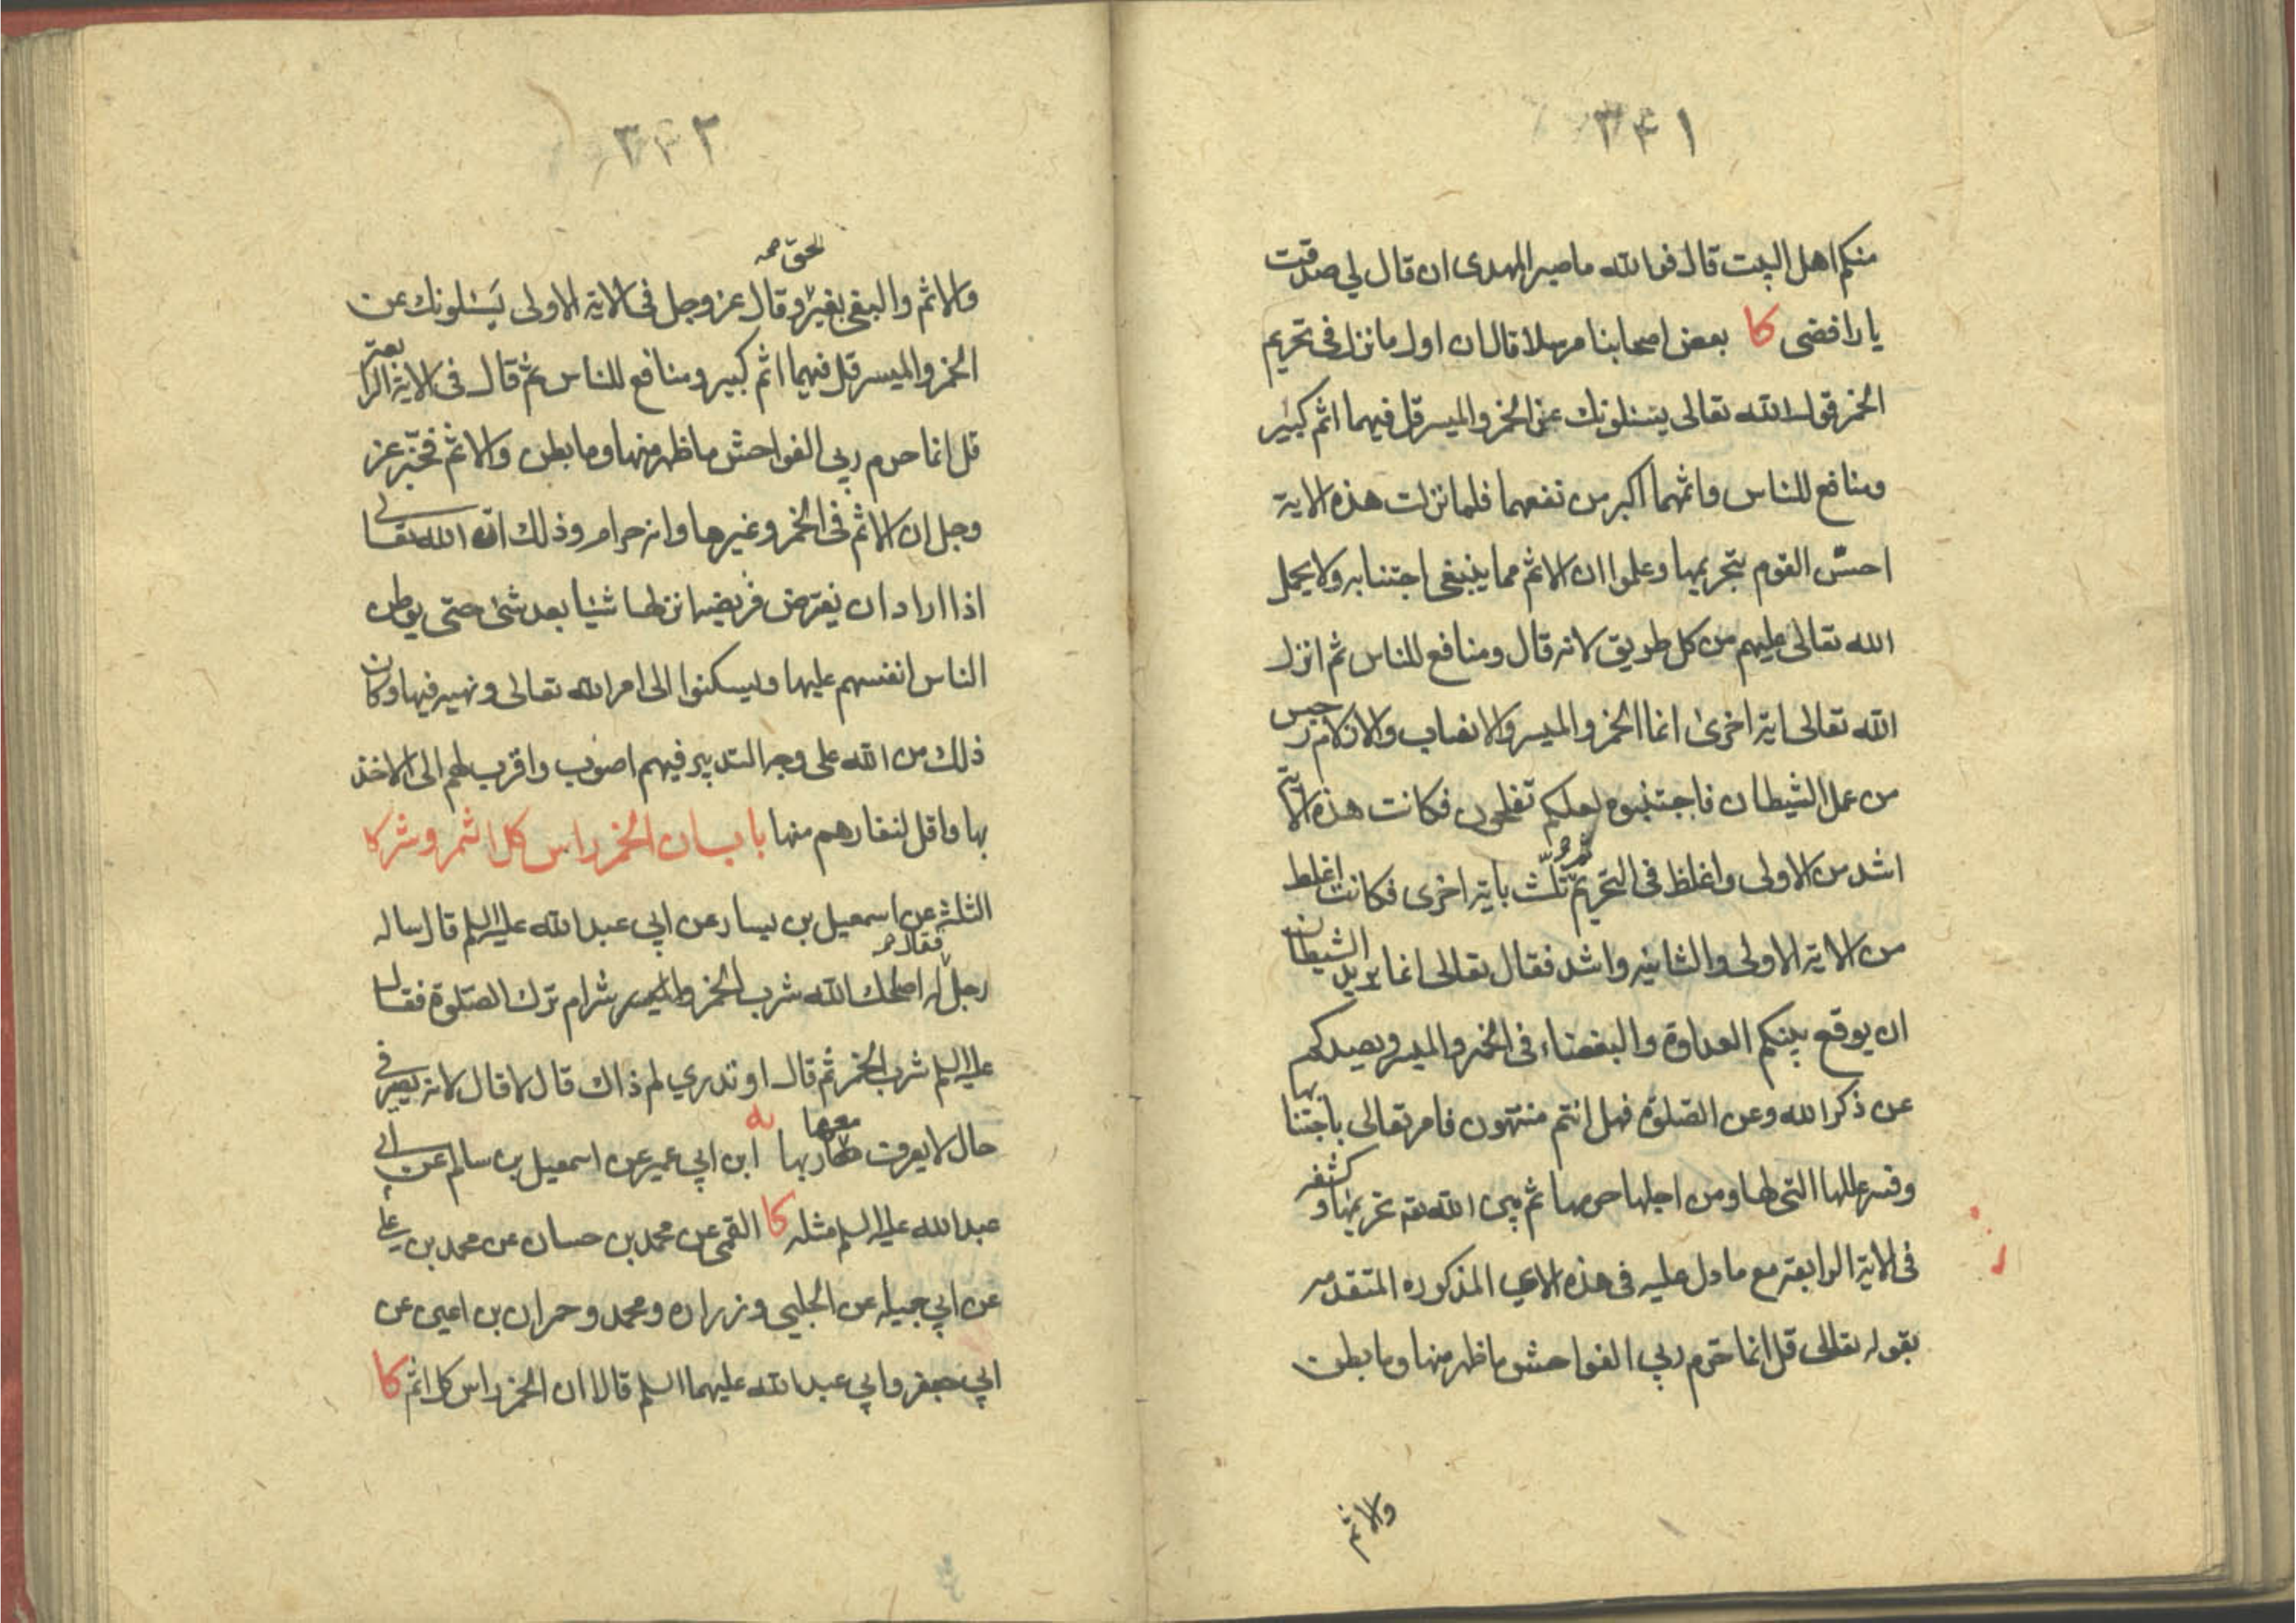 ۳۴۱
منكم اهل البيت قال فوالله ما صبر المهدى ان قال لي صدقت
يا رافضى كا بعض اصحابنا مرسلا قال ان اول ما نزل فى تحريم
الخمر قول الله تعالى يسئلونك عن الخمر والميسر قل فيهما اثم كبير
ومنافع للناس واثمهما اكبر من نفعهما فلما نزلت هذه الاية
احسّ القوم بتحريمها وعلموا ان الاثم مما ينبغى اجتنابه ولا يحمل
الله تعالى عليهم من كل طريق لانه قال ومنافع للناس ثم انزل
الله تعالى اية اخرى انما الخمر والميسر والانصاب والازلام رجس
من عمل الشيطان فاجتنبوه لعلكم تفلحون فكانت هذه الاية
اشد من الاولى واغلظ فى التحريم ثم ثلّث باية اخرى فكانت اغلظ
من الاية الاولى والثانية واشد فقال تعالى انما يريد الشيطان
ان يوقع بينكم العداوة والبغضاء فى الخمر والميسر ويصدكم
عن ذكر الله وعن الصّلوة فهل انتم منتهون فامر تعالى باجتنابها
وفسر عللها التى لها ومن اجلها حرمها ثم بين الله تعه تحريمها وكشفه
فى الاية الرابعة مع ما دل عليه فى هذه الاي المذكوره المتقدمه
بقوله تعالى قل انما حرّم ربي الفواحش ما ظهر منها وما بطن
والاثم
۳۴۲
الحق صحـ
والاثم والبغى بغير وقال عز وجل فى الاية الاولى يَسئلونك عن
الخمر والميسر قل فيهما اثم كبير ومنافع للناس ثم قال فى الاية الرابعة
قل انما حرم ربي الفواحش ما ظهر منها وما بطن والاثم فخبّر عز
وجل ان الاثم فى الخمر وغيرها وانه حرام وذلك انّ الله تعالى
اذا اراد ان يفترض فريضة انزلها شيئا بعد شئ حتى يوطن
الناس انفسهم عليها ويسكنوا الى امر الله تعالى ونهيه فيها وكان
ذلك من الله على وجه التدبير فيهم اصوب واقرب لهم الى الاخذ
بها واقل لنفارهم منها باب ان الخمر راس كل اثم وشر كا
الثلثة عن اسمعيل بن يسار عن ابي عبد الله عليه السلم قال ساله
فقال
رجل له اصلحك الله شرب الخمر شر ام ترك الصّلوة فقال
عليه السلم شرب الخمر ثم قال او تدري لم ذاك قال لا قال لانه يصير فى
معها
حال لا يعرف ربها يه ابن ابي عمير عن اسمعيل بن سالم عن ابي
عبد الله عليه السلم مثله كا القمى عن محمد بن حسان عن محمد بن على
عن ابي جميله عن الحلبي وزراره ومحمد وحمران بن اعين عن
ابي جعفر وابي عبد الله عليهما السلم قالا ان الخمر راس كل اثم كا